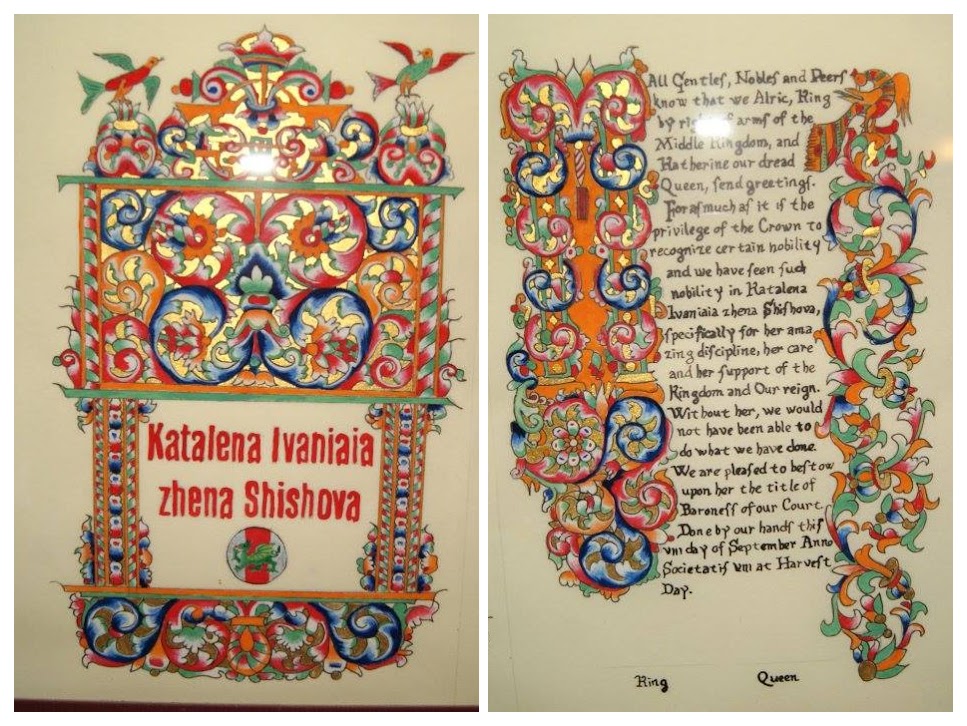 Katalena Ivaniaia
zhena Shishova
All Gentleſ, Nobleſ and Peerſ
know that we Alric, King
by right of armſ of the
Middle Kingdom, and
Katherine our dread
Queen, ſend greetingſ.
Foraſmuch aſ it iſ the
privilege of the Crown to
recognize certain nobility
and we have ſeen ſuch
nobility in Katalena
Ivaniaia zhena Shiſhova,
ſpecifically for her ama
zing diſcipline, her care
and her ſupport of the
Kingdom and Our reign.
Without her, we would
not have been able to
do what we have done.
We are pleaſed to beſtow
upon her the title of
Baroneſſ of our Court.
Done by our handſ thiſ
day of September Anno
Societatiſ at Harveſt
Day.
King Queen